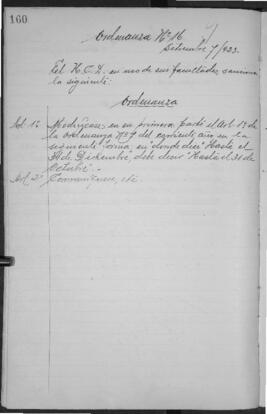 160
Ordenanza Nº 16
Setiembre 7/923.
El H.C.D. en uso de sus facultades, sanciona
la siguiente:
Ordenanza
Art. 1º Modifícase, en su primera parte el Art. 1º de
la Ordenanza Nº 7 del corriente año en la
siguiente forma, en donde dice "Hasta el
31 de Diciembre", debe decir "Hasta el 31 de
Octubre".
Art. 2º Comuníquese, etc.